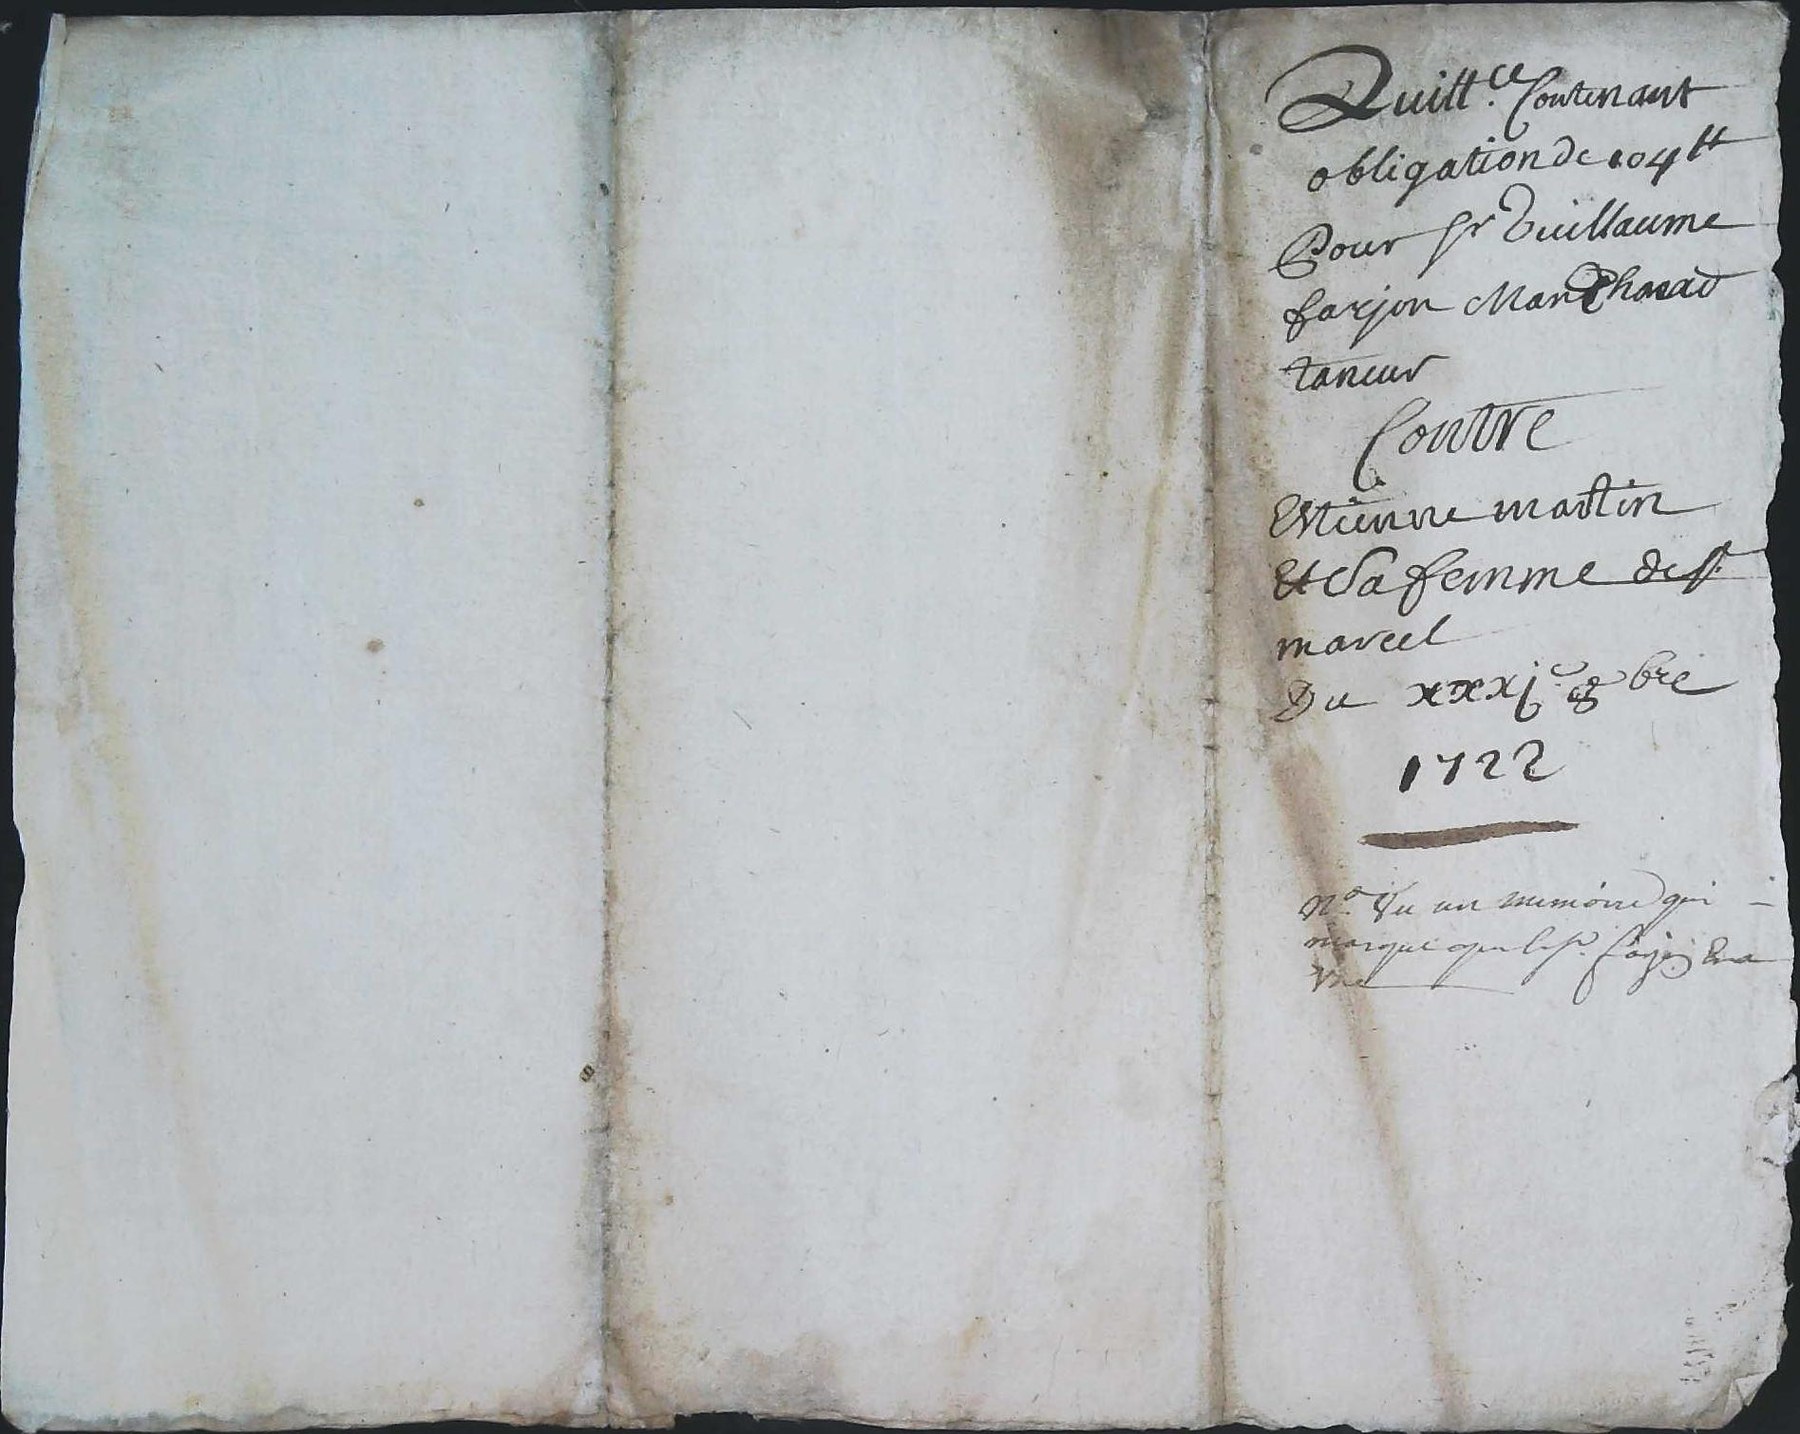 Quitt.ce Contenant
obligation de 104 ₶
Pour Sr Guillaume
farjon Marchand
taneur
Contre
Estienne martin
Et Sa femme de St.
marcel
Du xxxje 8bre
1722
No. Vu un memoire qui
marque que le Sr. farjon En a